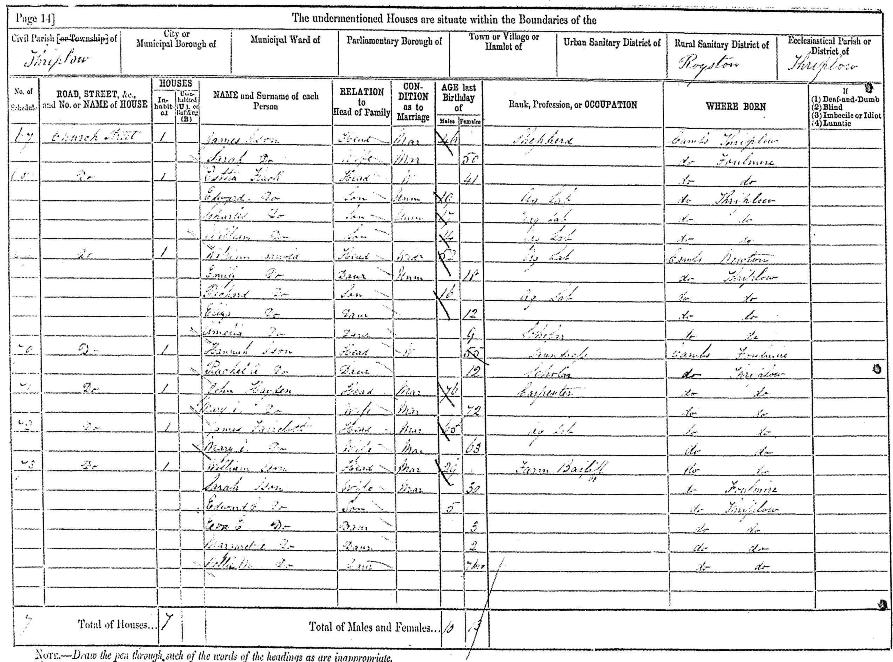 Page 14] The undermentioned Houses are situate within the Boundaries of the
Civil Parish [or Township] of City or Municipal Borough of Municipal Ward of Parliamentary Borough of Town or Village or Hamlet of Urban Sanitary District of Rural Sanitary District of Ecclesiastical Parish or District of
Thriplow Royston Thriplow
No. of Schedule ROAD, STREET, &c., and No. or NAME of HOUSE HOUSES Inhabited NAME and Surname of each Person RELATION to Head of Family CONDITION as to Marriage AGE last Birthday of Males Females Rank, Profession, or OCCUPATION WHERE BORN If (1) Deaf-and-Dumb (2) Blind (3) Imbecile or Idiot (4) Lunatic
67 Church Street 1 James Ison Head Mar 46 Shepherd Cambs Thriplow
Sarah Do Wife Mar 50 do Foulmire
Do 1 Head W 41 do do
Edward Do Son Unm 19 Ag Lab do Thriplow
Charles Do Son Unm Ag Lab do do
William Do Son Ag Lab do do
Do 1 Arnold Head 52 Ag Lab Cambs Newton
Emily Do Daur Unm 18 do Thriplow
Richard Do Son 16 Ag Lab do do
Eliza Do Daur 12 do do
Amelia Do Daur 9 Scholar do do
70 Do 1 Hannah Ison Head W 55 Laundress Cambs Foulmire
Rachel Do Daur 12 Scholar do Thriplow
71 Do 1 John Head Mar 76 Carpenter do do
Do Wife Mar 72 do do
72 Do 1 James Head Mar 65 Ag Lab do do
Mary Do Wife Mar 63 do do
73 Do 1 William Ison Head Mar 29 Farm Bailiff do do
Sarah Ison Wife Mar 30 do Foulmire
Edward Do Son 5 do Thriplow
Do Daur 3 do do
Margaret Do Daur 2 do do
Do Daur 7mo do do
7 Total of Houses... 7 Total of Males and Females... 10 13
NOTE.—Draw the pen through such of the words of the headings as are inappropriate.